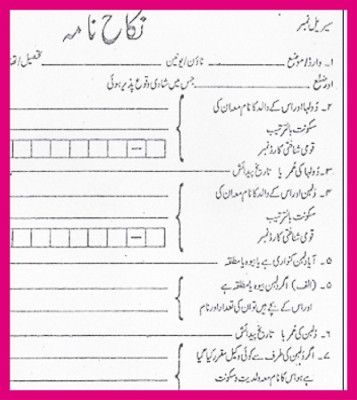 سیریل نمبر
نکاح نامہ
۱۔ وارڈ/موضع ــــــــ ٹاؤن/یونین ــــــــ تحصیل/تھا
اور ضلع ــــــــ جس میں شادی وقوع پذیر ہوئی
۲۔ دُولہا اور اس کے والد کا نام معہ ان کی
سکونت بالترتیب
قومی شناختی کارڈ نمبر
۳۔ دُولہا کی عمر یا تاریخ پیدائش
۴۔ دُلہن اور اس کے والد کا نام معہ ان کی
سکونت بالترتیب
قومی شناختی کارڈ نمبر
۵۔ آیا دلہن کنواری ہے یا بیوہ یا مطلقہ
۵۔ (الف) اگر دلہن بیوہ یا مطلقہ ہے
اور اس کے بچے ہیں تو ان کی تعداد اور نام
۶۔ دُلہن کی عمر یا تاریخ پیدائش
۷۔ اگر دُلہن کی طرف سے کوئی وکیل مقرر کیا گیا
ہے ہو اس کا نام معہ ولدیت و سکونت